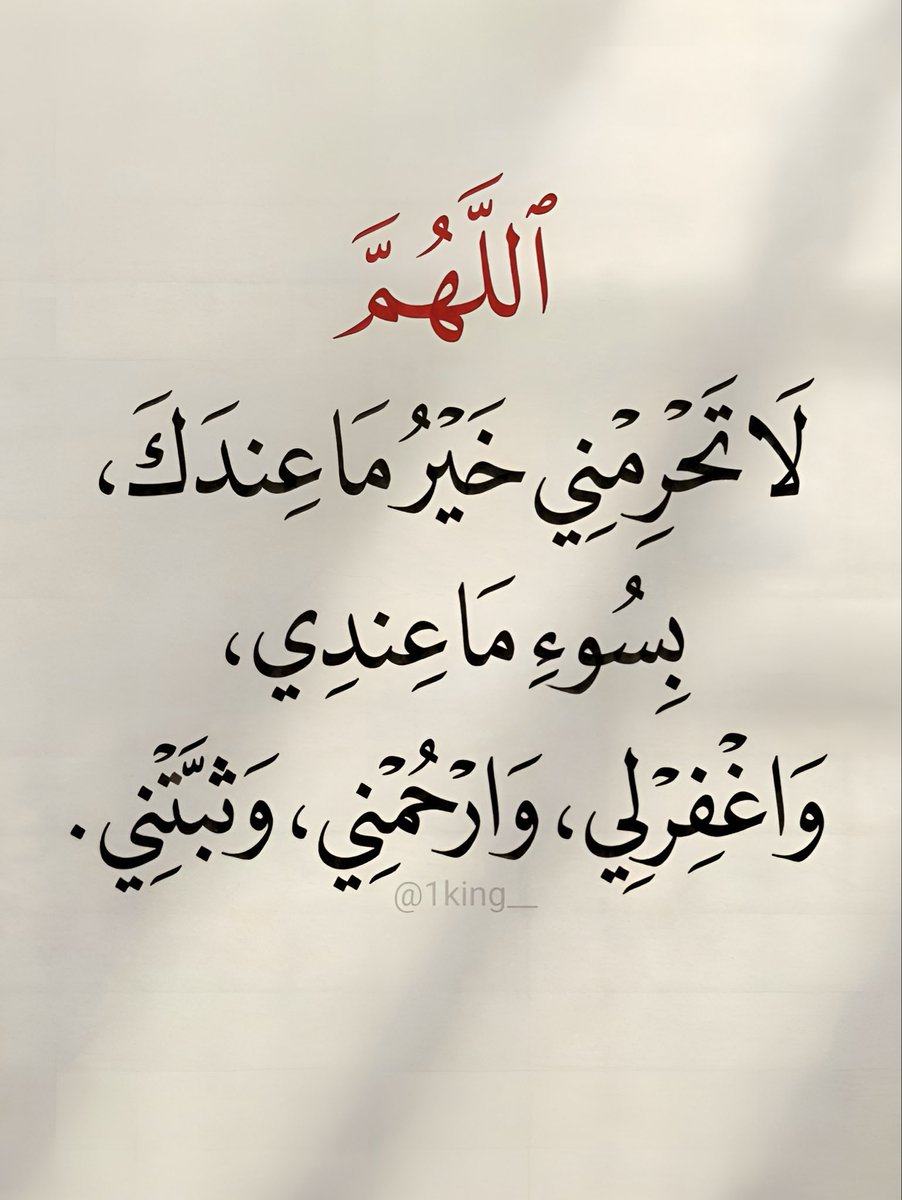 ٱللَّهُمَّ
لَا تَحْرِمْنِي خَيْرُ مَا عِندَكَ،
بِسُوءِ مَا عِندِي،
وَاغْفِرْلِي، وَارْحُمْنِي، وَثَبَّتْنِي.
@1king__